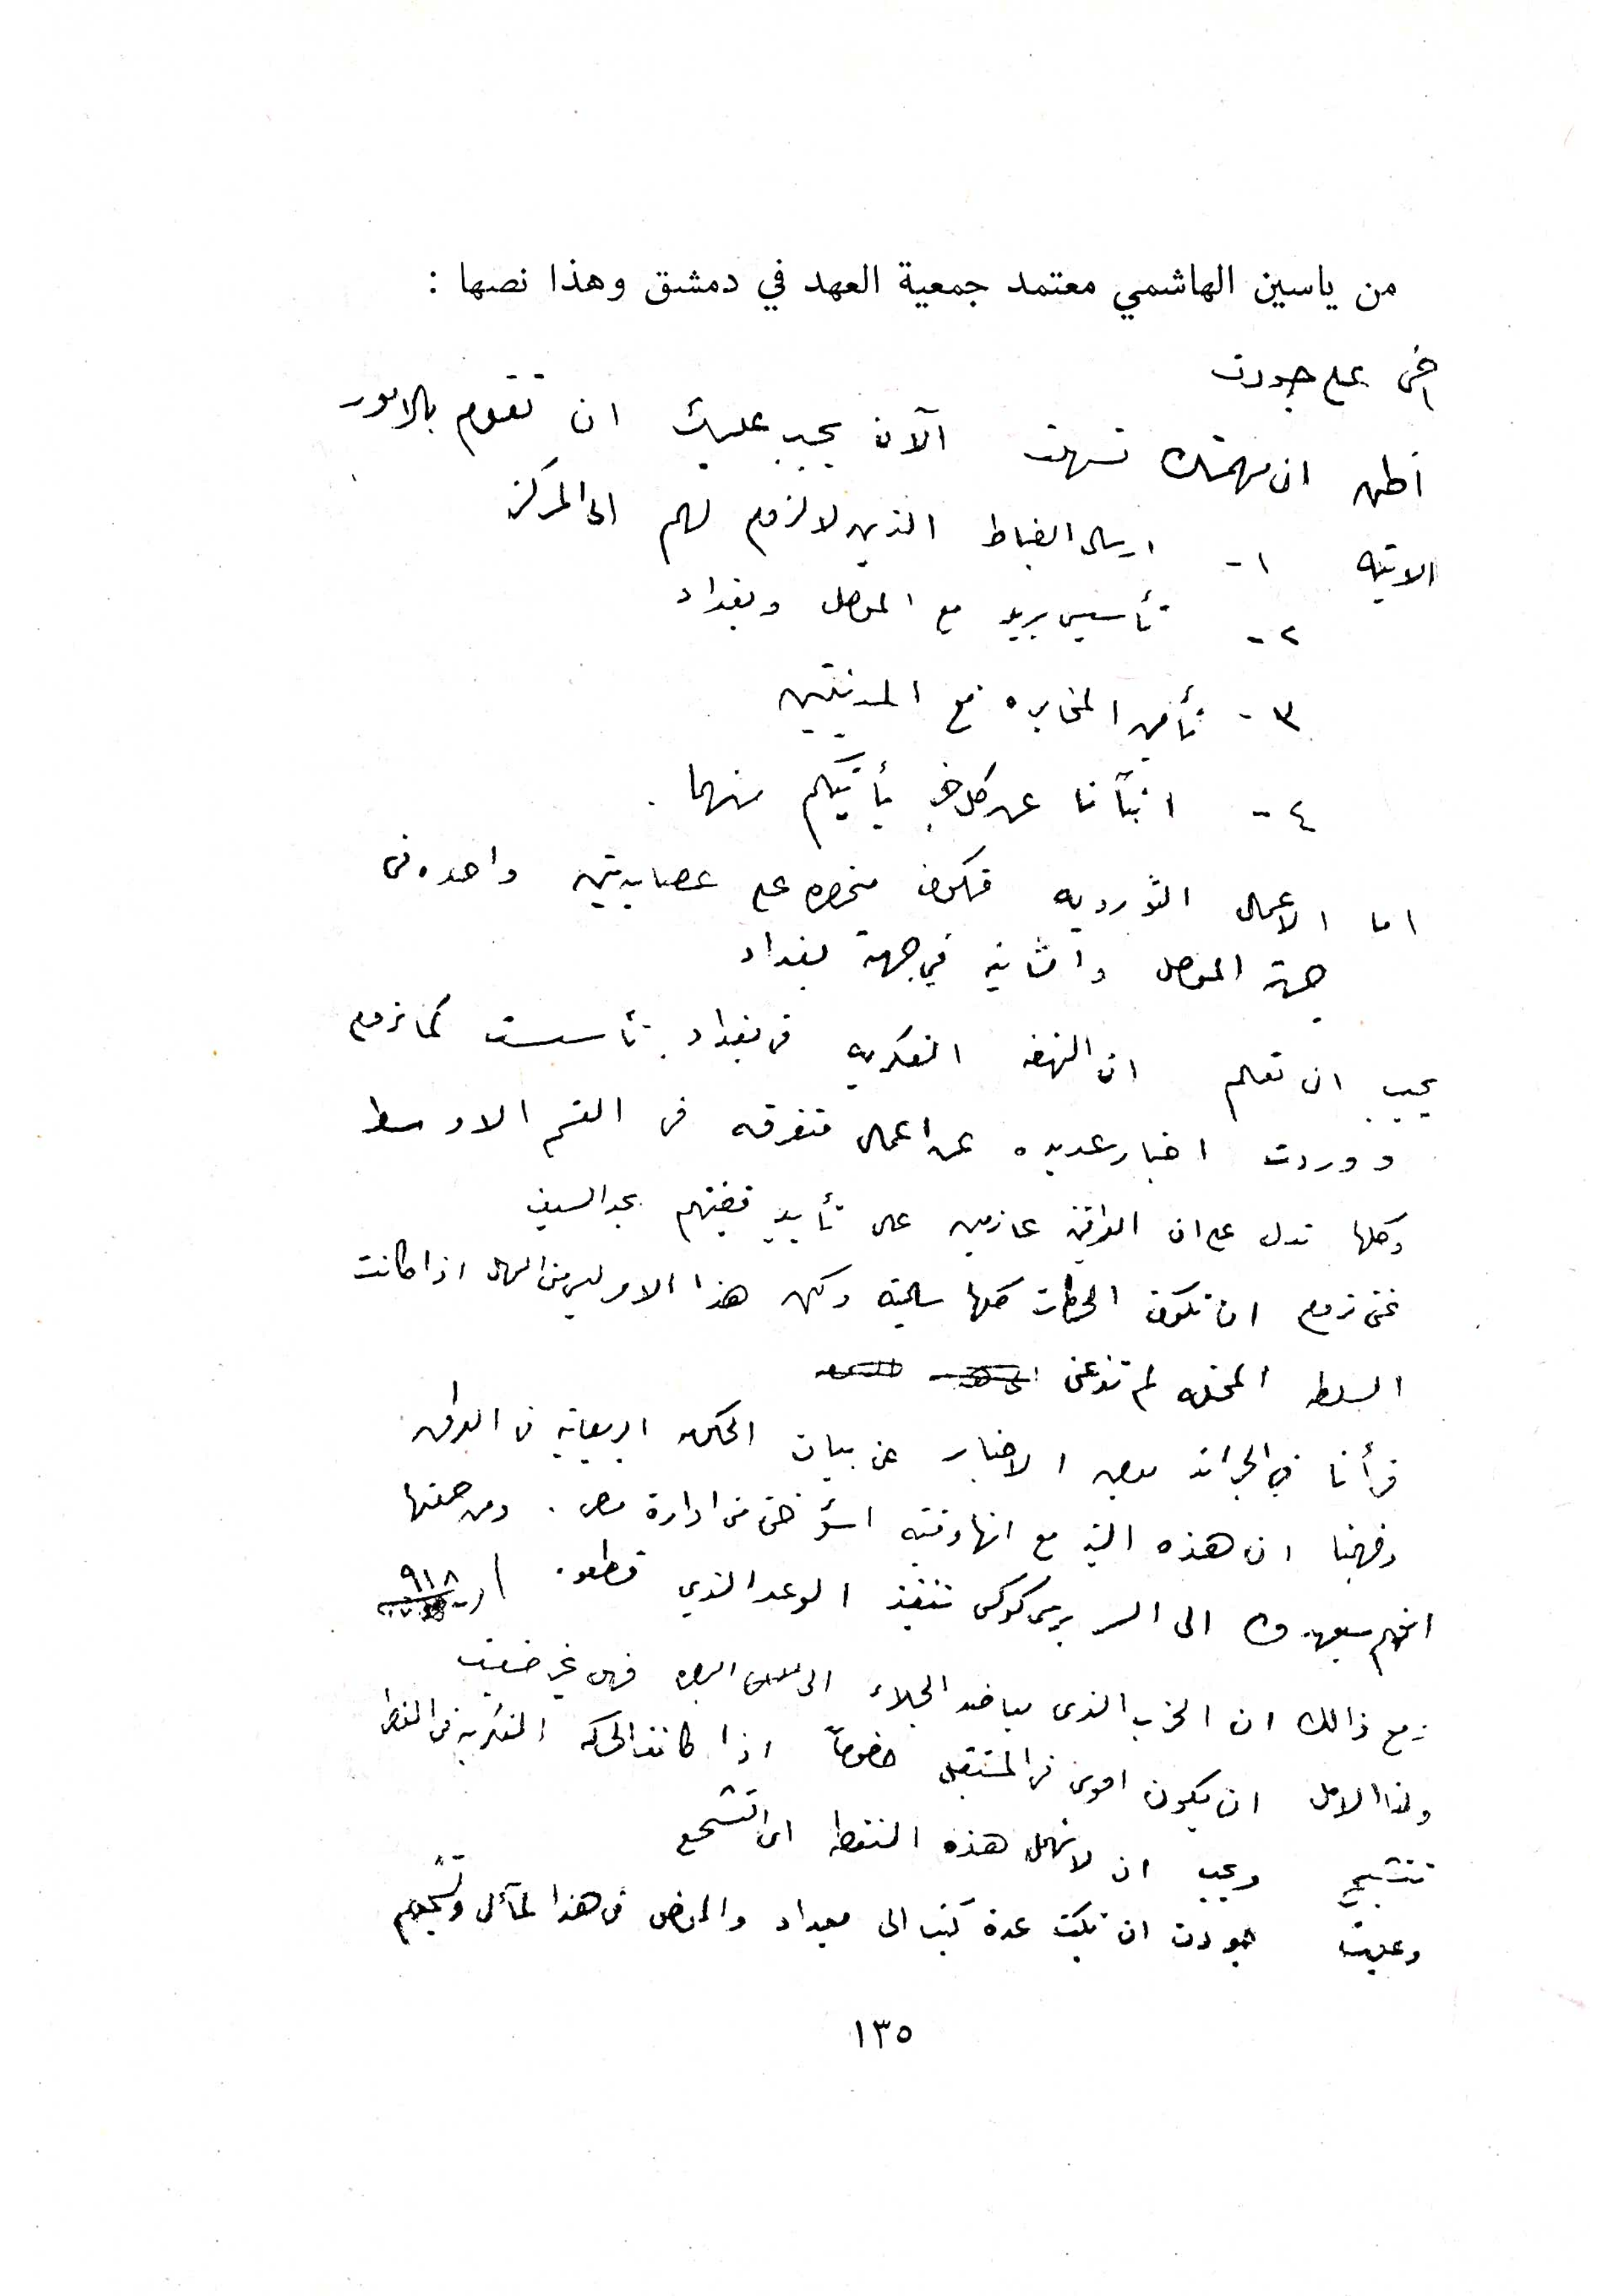 من ياسين الهاشمي معتمد جمعية العهد في دمشق وهذا نصها :
اخي علي جودت
أظن ان مهمتك تسهلت الآن يجب عليك ان تقوم بالامور
الاتيه ١- ارسال الضباط الذين لا لزوم لهم الى المركز
٢- تأسيس بريد مع الموصل وبغداد
٣- تأمين المخابره مع المدينتين
٤- انبآنا عن كل خبر يأتيكم منهما .
اما الاعمال الثورويه فتكون منحصره على عصابتين واحده في
جهة الموصل والثانيه في جهة بغداد
يجب ان تعلم ان النهضه الفكريه في بغداد تأسست كما نروم
ووردت اخبار عديده عن اعمال متفرقه في القسم الاوسط
وكلها تدل على ان العراقيين عازمين على تأييد قضيتهم بحد السيف
نحن نروم ان تكون الحركات كلها سلميه ولكن هذا الامر ليس من السهل اذا كانت
السلطه المحتله لم تذعن
قرأنا في الجرائد بعض الاخبار عن بيان الحكومه البريطانيه في العراق
وفهمنا ان هذه مع انها وقتيه من ادارة مصر . ومن ضمنها
انهم سيعهدون الى السر برسي كوكس تنفيذ الوعد الذي قطعوه ٩١٨
ومع ذالك ان الحزب الذي الجلاء الى البصره فهو غير ضعيف
ولنا الامل ان يكون اقوى في المستقبل خصوصاً اذا كانت الحركه الفكرية في القطر
تتشجع ويجب ان لا نهمل هذه النقطه اي التشجع
وعليك جودت ان تكتب عدة كتب الى بغداد والموصل في هذا المآل وتشجعهم
١٣٥